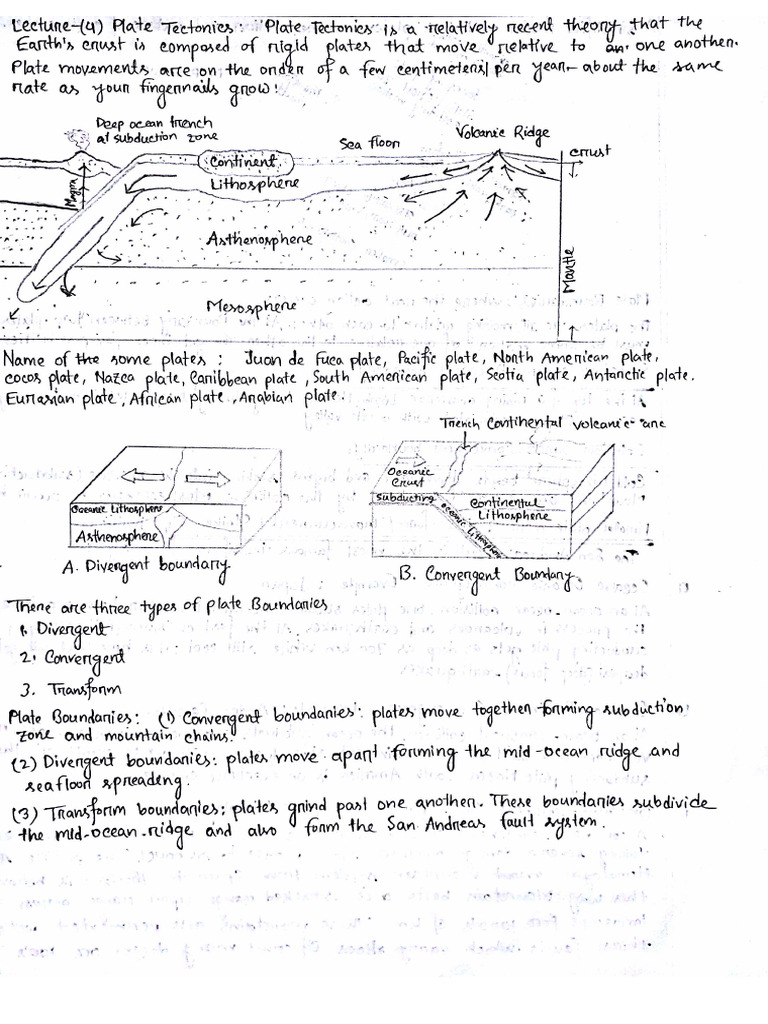 Lecture-(4) Plate Tectonics: Plate Tectonics is a relatively recent theory that the
Earth's crust is composed of rigid plates that move relative to an. one another.
Plate movements are on the order of a few centimeters/per year- about the same
rate as your fingernails grow!
Deep ocean trench
at subduction zone
Sea floor
Volcanic Ridge
crust
Continent
Lithosphere
Magma
Asthenosphere
Mantle
Mesosphere
Name of the some plates: Juan de Fuca plate, Pacific plate, North American plate,
cocos plate, Nazca plate, Caribbean plate, South American plate, Scotia plate, Antarctic plate.
Eurasian plate, African plate, Arabian plate.
Trench Continental volcanic arc
Oceanic
Crust
Oceanic Lithosphere
Asthenosphere
Subducting
Oceanic Lithosphere
Continental
Lithosphere
A. Divergent boundary
B. Convergent Boundary
There are three types of plate Boundaries
1. Divergent
2. Convergent
3. Transform
Plate Boundaries: (1) Convergent boundaries: plates move together forming subduction
zone and mountain chains.
(2) Divergent boundaries: plates move apart forming the mid-ocean ridge and
seafloor spreading.
(3) Transform boundaries: plates grind past one another. These boundaries subdivide
the mid-ocean-ridge and also form the San Andreas fault system.